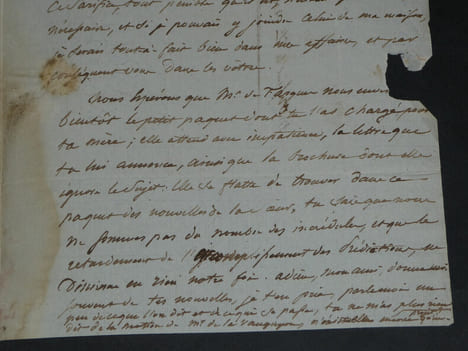 ce sacrifice, tout
nécessaire, et si je pouvais y joindre celui de ma maison,
je serais tout à fait bien dans mes affaires, et par
conséquent vous dans les vôtres.
Nous espérons que Mr. de
bientôt le petit paquet dont tu l'as chargé pour
ta mère ; elle attend avec impatience, la lettre que
tu lui annonce, ainsi que la brochure dont elle
ignore le sujet. Elle se flatte de trouver dans ce
paquet des nouvelles de la cour, tu sais que nous
ne sommes pas du nombre des incrédules, et que le
retardement de l'accomplissement des prédictions, ne
diminue en rien notre foi. adieu, mon ami, donne nous
souvent de tes nouvelles, je t'en prie, parle moi un
peu de ce que l'on dit et de ce qui se passe, tu ne m'as plus rien
dit de la motion de Mr. de la Vauguyon, encore